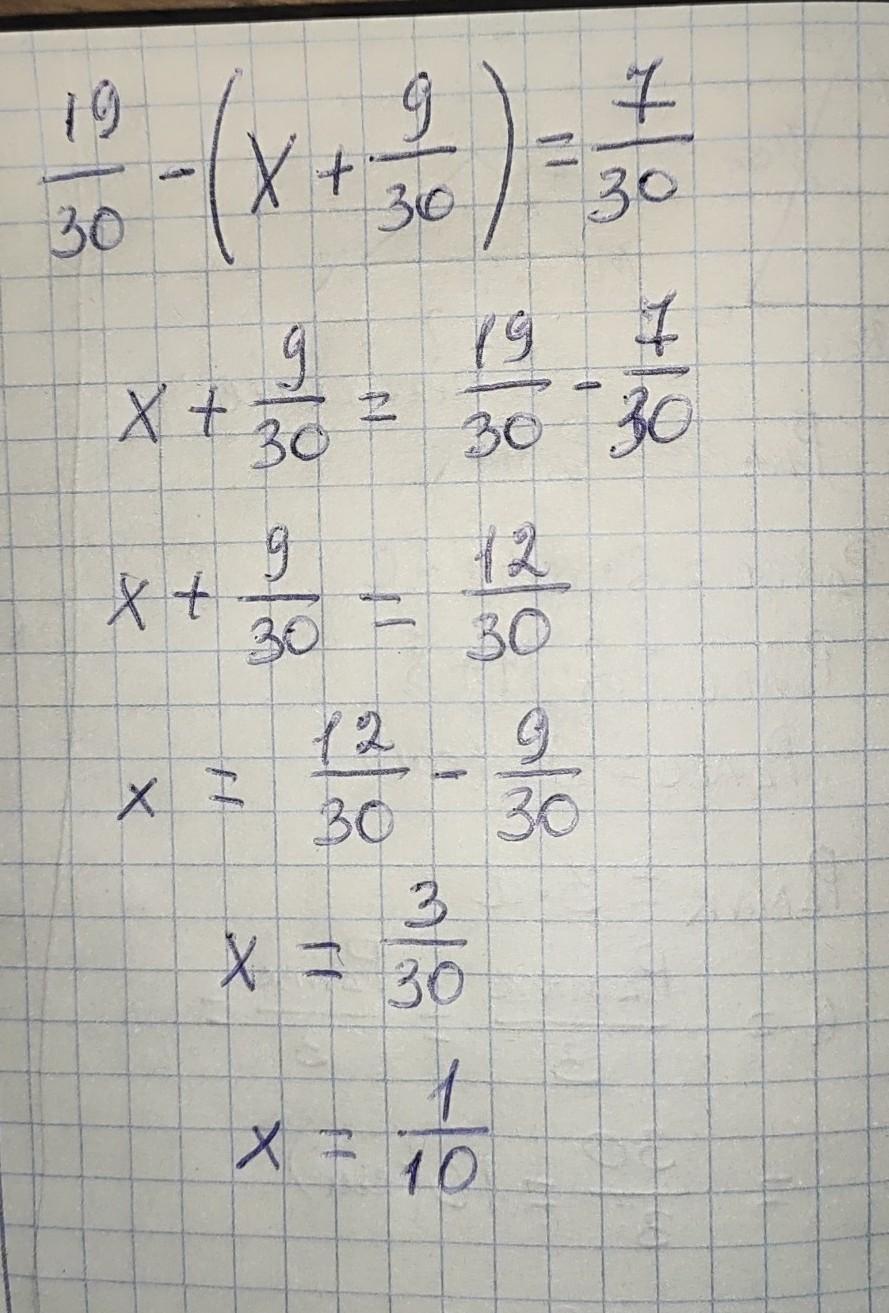 19/30 - (x + 9/30) = 7/30
x + 9/30 = 19/30 - 7/30
x + 9/30 = 12/30
x = 12/30 - 9/30
x = 3/30
x = 1/10